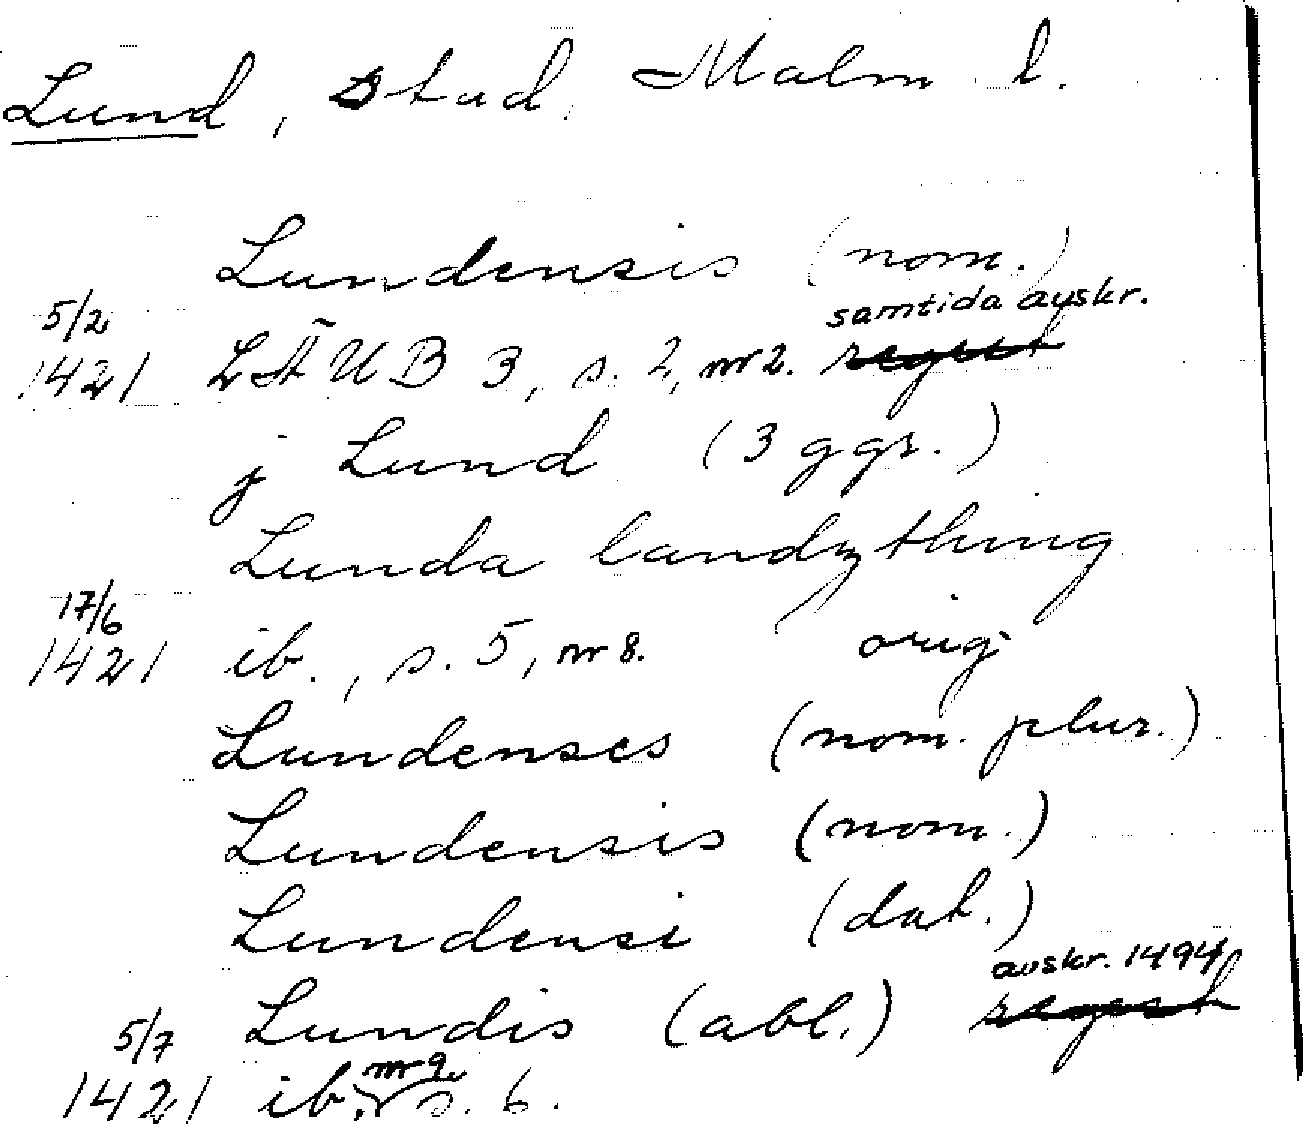 Lund, stad, Malm l.
Lundensis (nom.)
5/2 samtida avskr.
1421 LÄUB 3, s. 2, nr 2. regest
j Lund (3 ggr.)
Lunda landzthing
17/6
1421 ib., s. 5, nr 8. orig
Lundenses (nom. plur.)
Lundensis (nom.)
Lundensi (dat.)
avskr. 1494
5/7 Lundis (abl.) regest
nr 9,
1421 ib., s. 6.